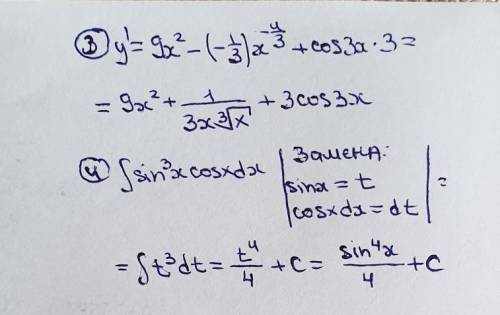 ③ y' = 9x² - (-1/3)x^(-4/3) + cos3x · 3 =
= 9x² + 1/(3x∛x) + 3cos3x
④ ∫sin³x cosxdx | Замена: sinx = t cosxdx = dt | =
= ∫t³dt = t⁴/4 + C = sin⁴x/4 + C